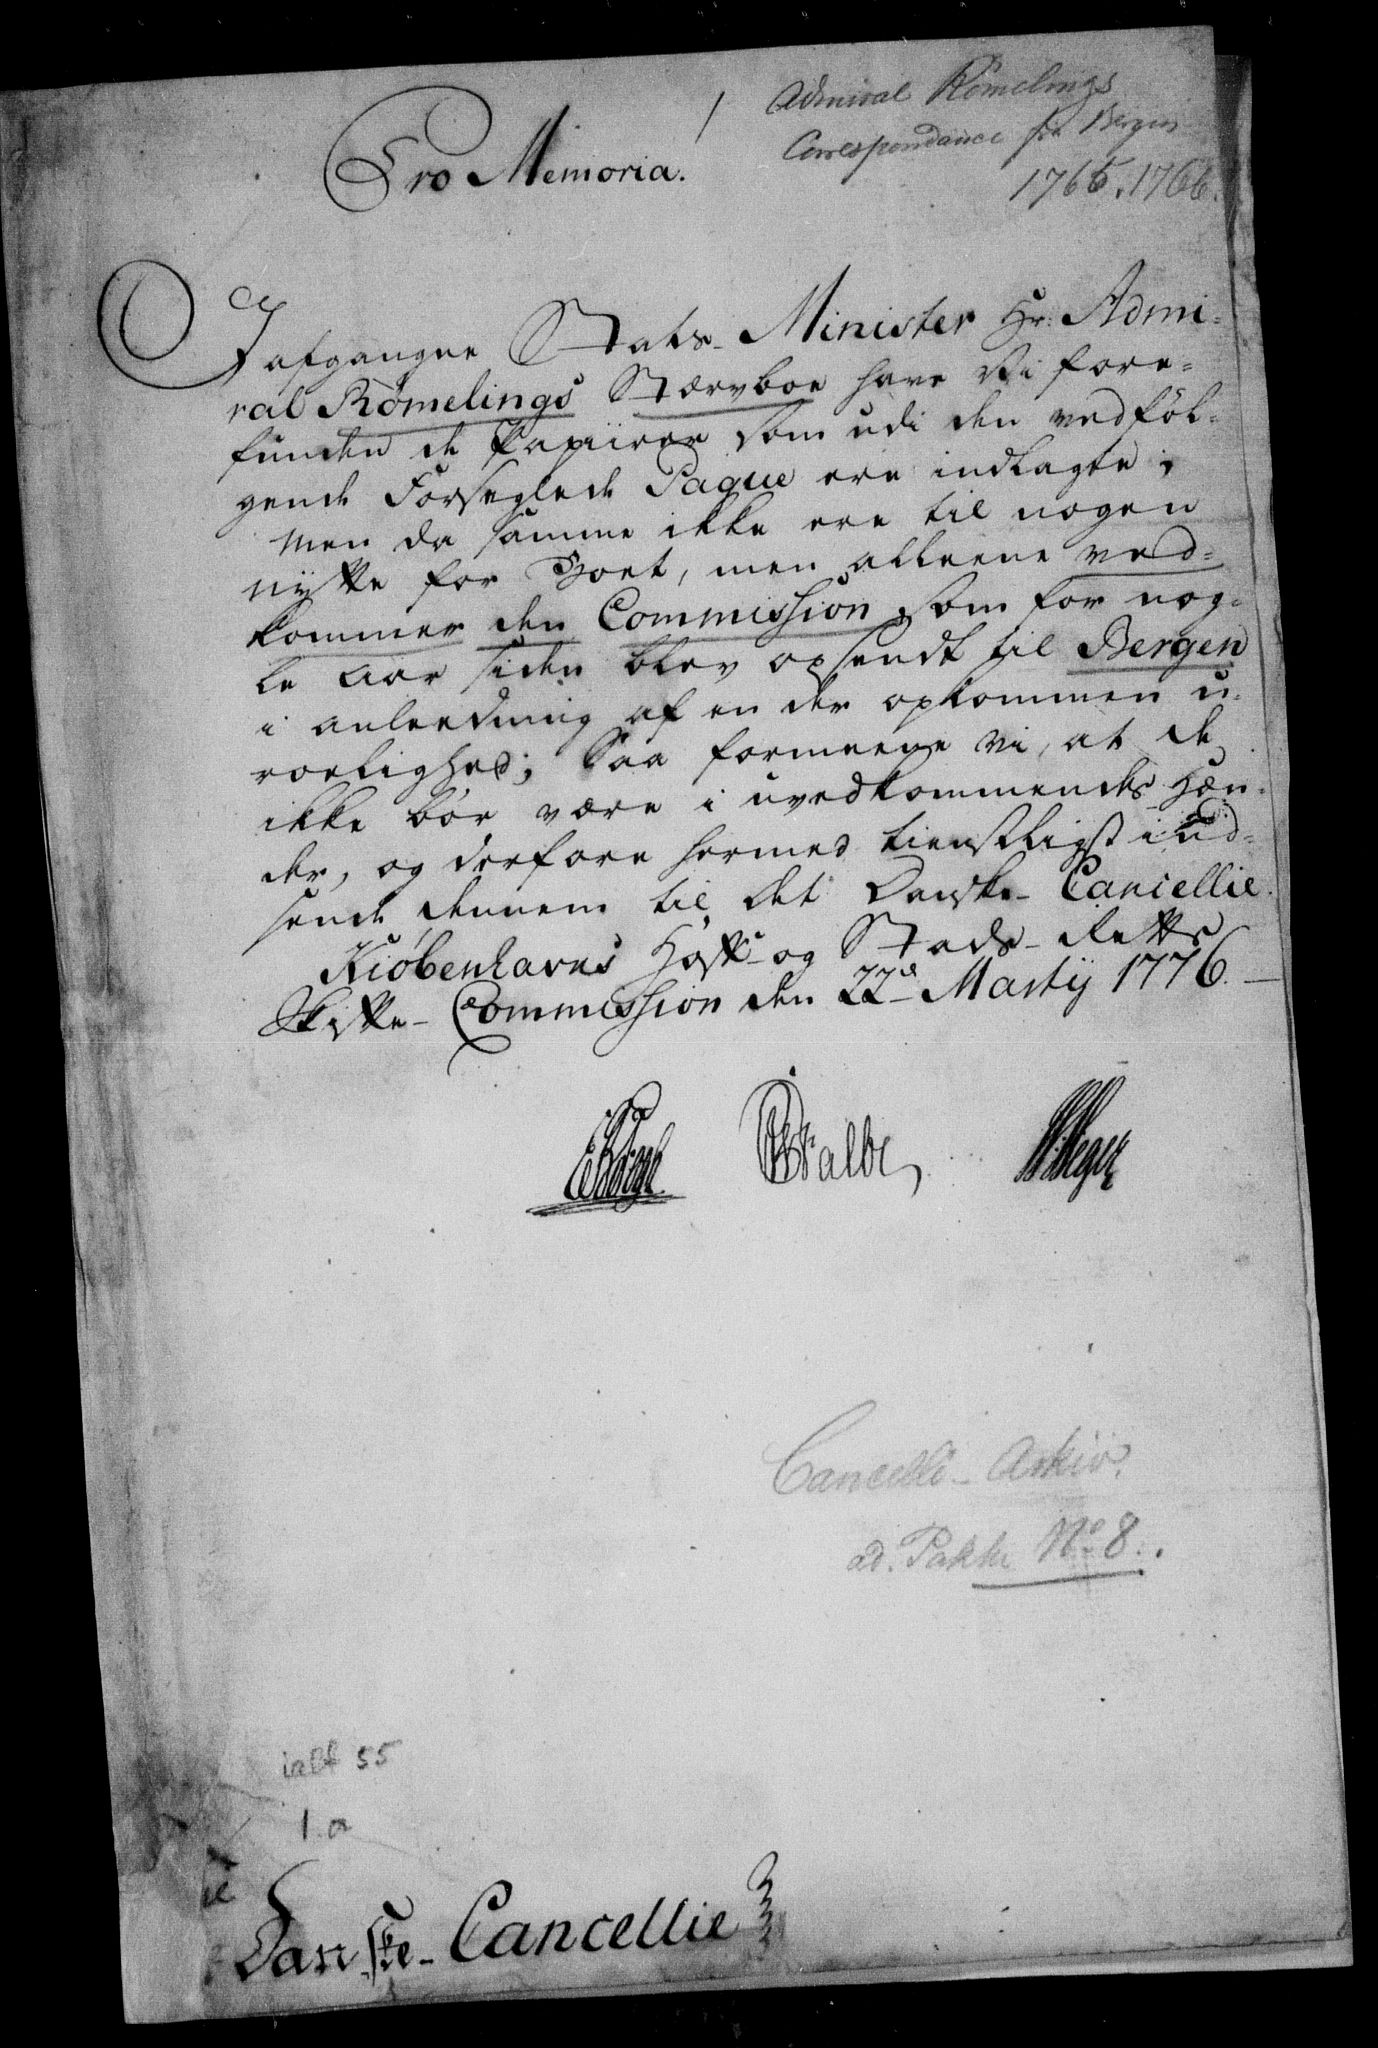 Pro Memoria.
/
Admiral Römelings
Correspondance fra Bergen
1765. 1766.
I afgangne Stats-Minister Hr: Admi-
ral Römelings Stærvboe have Vi fore-
funden de Papiirer som udi den vedföl-
gende Forseglede Paque ere indlagte;
Men da samme ikke ere til nogen
nytte for Boet, men alleene ved-
kommer den Commission, som for nog-
le Aar siden blev opsendt til Bergen
i anleedning af en der opkommen u-
roelighed; Saa formeene vi, at de
ikke bör være i uvedkommendes Hæn-
der, og derfore hermed tienstligst ind-
sende dennem til det Danske-Cancellie.
Kiöbenhavns Hoff- og Stads-Retts
Skifte-Commission den 22d Martij 1776.
Falbe
Cancelli-Arkiv.
ad. Pakke No 8.
ialt 55
1 a
Danske-Cancellie